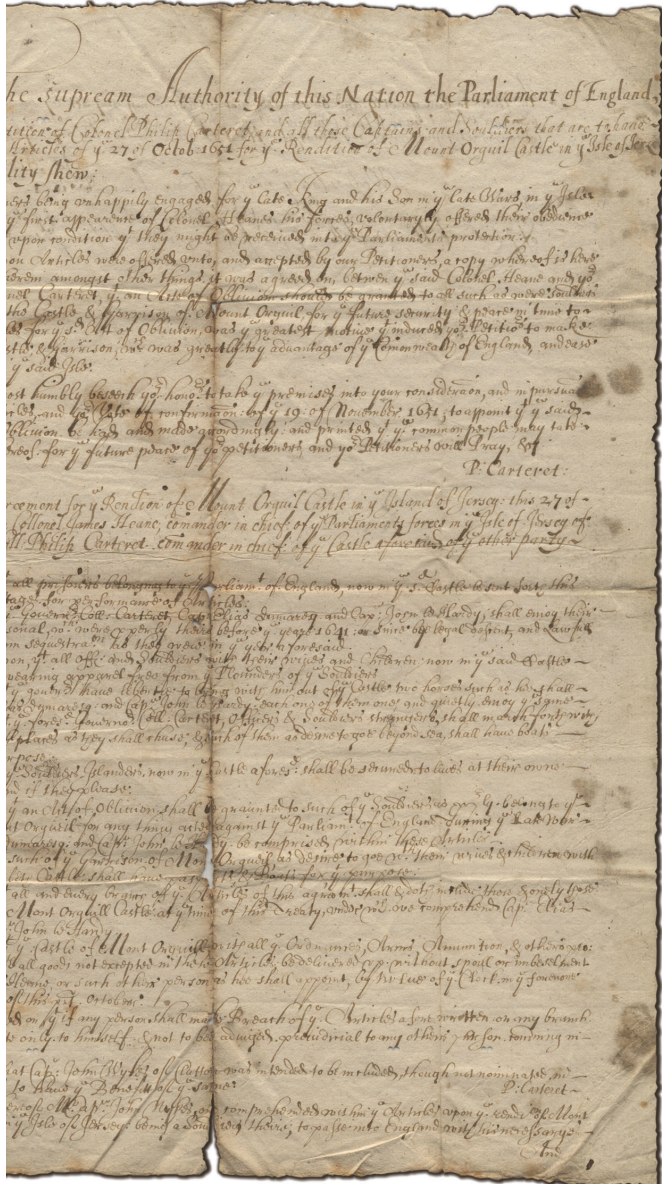 he Supream Authority of this Nation the Parliament of England
tition of Colonel Philip Carteret and all those Captains and Souldiers that are to have
Articles of yᵉ 27 of Octob: 1651 for yᵉ Rendition of Mount Orguil Castle in yᵉ Isle of Jer-
lity shew:
ners being unhappily engaged for yᵉ late King and his Son in yᵉ late Wars, in yᵉ Isle
yᵉ first appearence of Colonel Heanes his forces, voluntaryly offered their obedience
upon condition yᵗ they might be received into yᵉ Parliaments protection:
on Articles were offered unto, and accepted by our Petitioners a copy whereof is here
erein amongst other things it was agreed on between yᵉ said Colonel Heane and yoʳ
nel Carteret, yᵗ an Act of Oblivion should be granted to all such as were Souldiers
the Castle & Garrison of Mount Orguil for yᵉ future security & peace in time to
es for yᵉ sd Act of Oblivion, was yᵉ greatest motive yᵗ induced yoʳ Petitioʳˢ to make
stle & Garrison, wᶜʰ was greatly to yᵉ advantage of yᵉ Comonwealth of England, and ease
yᵉ said Isle.
ost humbly beseech yoʳ honoʳˢ to take yᵉ premises into your consideraon, and in pursua
cles, and yoʳ Vote of confirmaon of yᵉ 19: of November 1651; to appoint yᵗ yᵉ said
Oblivion be had and made accordingly: and printed yᵗ yᵉ common people may take
ereof: for yᵉ future peace of yoʳ petitioners and yoʳ Petitioners will Pray, &c
P: Carteret:
reement for yᵉ Rendion of Mount Orguil Castle in yᵉ Island of Jersey: this 27 of
Colonel James Heane, comander in chief of yᵉ Parliaments forces in yᵉ Isle of Jersey of
ll Philip Carteret comander in chief of yᵉ Castle aforesaid of yᵉ other party
all prisoners belonging to yᵉ Parliamᵗ of England, now in yᵉ sᵈ Castle be sent forth this
tage for performance of Articles:
yᵉ Governʳ Coll: Carteret, Capᵗ Elias Dumaresq and Capᵗ John Le Hardy, shall enioy their
sonal, wᶜʰ were properly theirs before yᵉ year 1641: or since by legal descent, and Lawfull
m sequestraon as they were in yᵉ year aforesaid
on, yᵗ all offʳˢ and Souldiers with their wives and Children now in yᵉ said Castle
wearing apparrel free from yᵉ Plunder of yᵉ Souldiers
yᵉ Govern have libertie to bring with him out of yᵉ Castle two horses such as he shall
as Dumaresq and Capᵗ John Le Hardy, each one of them one, and quietly enioy yᵉ same
yᵉ foresd Governoʳ Coll: Carteret, Officers & Souldiers strangers, shall march forthwith
places as they shall chuse, & each of them as desire to goe beyond sea, shall have boats
rpose:
yᵉ Souldiers Islanders, now in yᵉ Castle aforesᵈ: shall be secured to live at their owne
nd if they please:
yᵗ an Act of Oblivion shall be graunted to such of yᵉ Souldiers as prᵒply belong to yᵉ
t Orguil for any thing acted against yᵉ Parliamᵗ of England during yᵉ late War
Dumaresq: and Capᵗ John Le Hardy be comprised within these Articles
such of yᵉ Garrison of Mont Orgueil as desire to goe wᵗʰ their wives & children with
Castle shall have Boats for yᵉ purpose:
all and every branc of yᵉ Articles of this agreemᵗ shall & doth include these & onely those
Mont Orguill Castle, at yᵉ time of this Treaty, under wᶜʰ we comprehend Capᵗ Elias
John Le Hardy
yᵉ Castle of Mont Orguill with all yᵉ Ordnances, Arms, Amunition, & other sto:
all goods not excepted in these Articles, be delivered up without spoil or imbeselment
Heane, or such other person as hee shall appoint, by twelve of yᵉ Clock in yᵉ forenoone
of this October:
ed on yᵗ if any person shall make Breach of yᵉ Articles afore written or any branch
te only to himself & not to be adiudged preiudicial to any other person conteined in
at Capᵗ: John Wykes of was intended to be included, though not nominated, in
to have yᵉ Benefit of yᵉ same:
P: Carteret
comprehended within yᵉ Articles upon yᵉ rendiᵒ of Mont
yᵉ Isle of Jersey: to passe into England with his necessarys